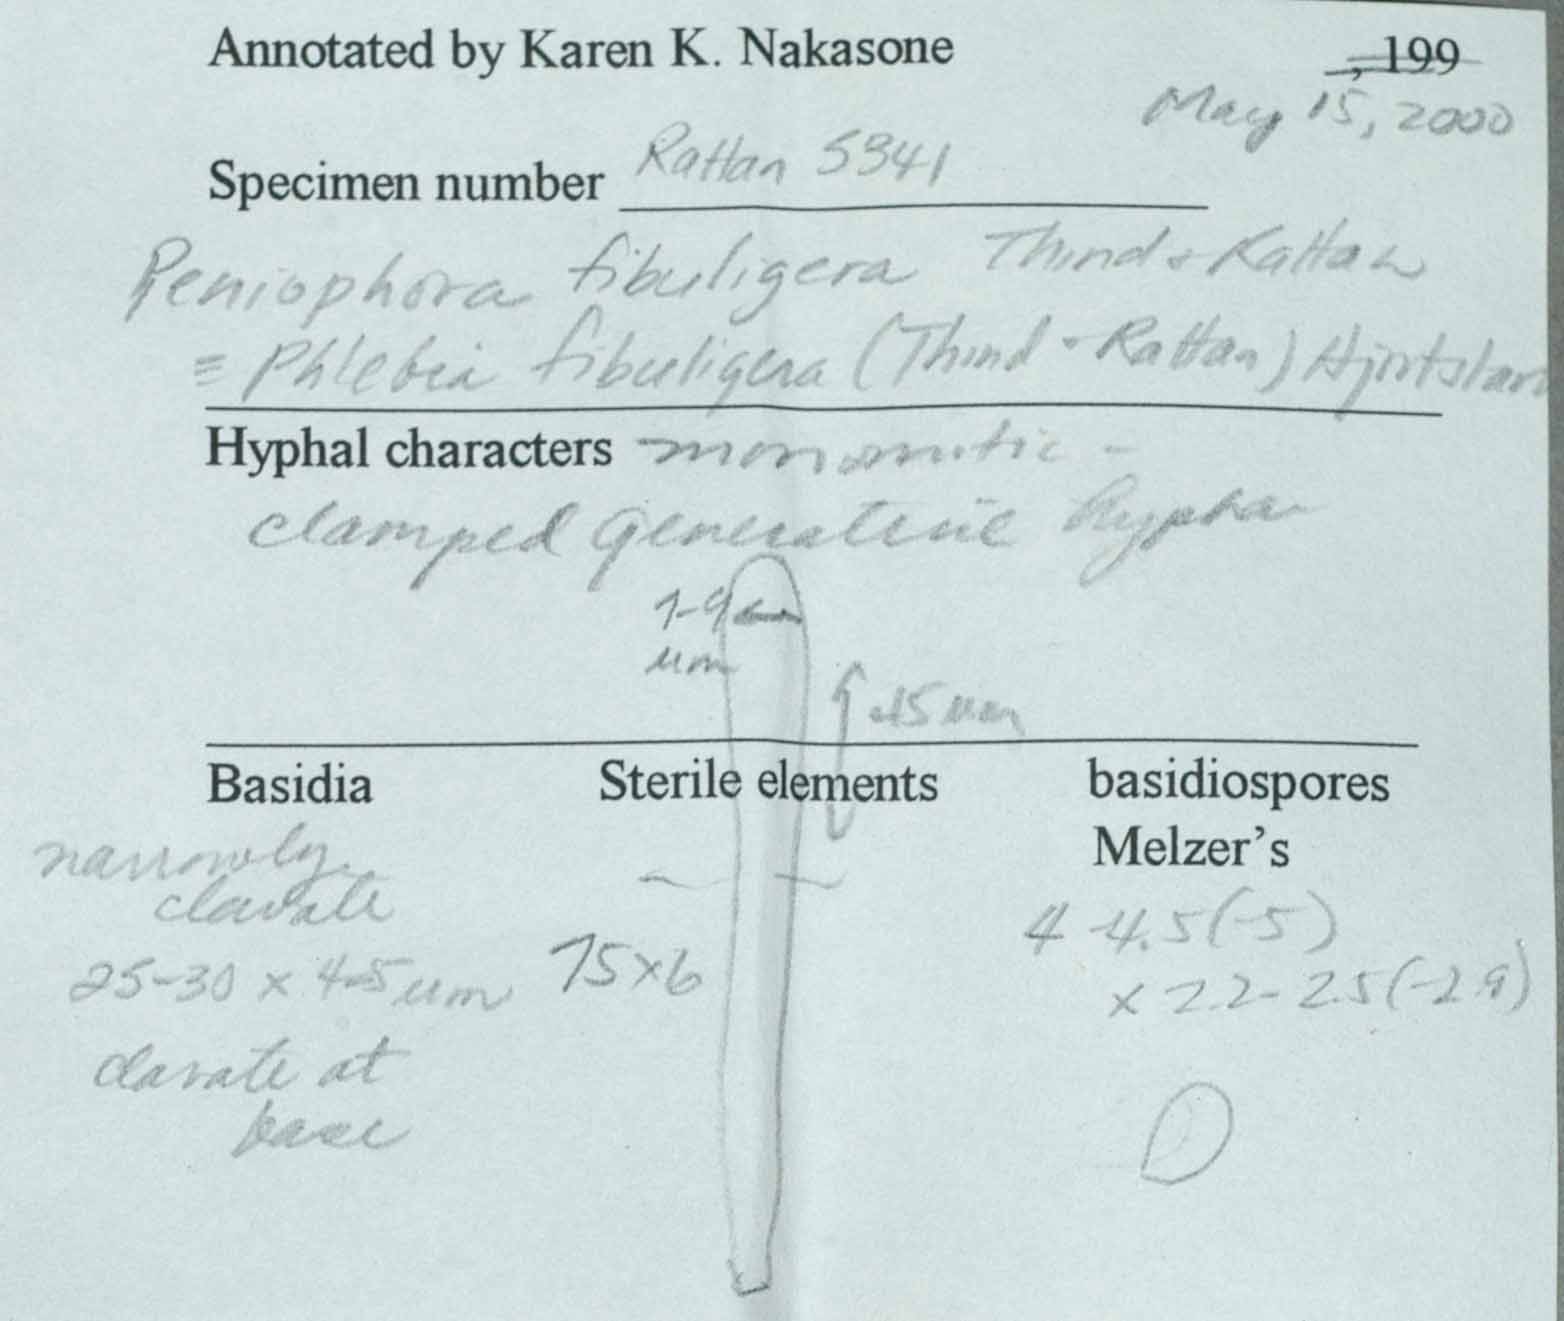 Annotated by Karen K. Nakasone , 199
May 15, 2000
Specimen number Rattan 5341
Peniophora fibuligera Thind & Rattan
≡ Phlebia fibuligera (Thind & Rattan) Hjortstam
Hyphal characters monomitic -
clamped generative hyphae
7-9
um
45 um
Basidia Sterile elements basidiospores
Melzer's
narrowly
clavate
4-4.5(-5)
25-30 x 4-5 um 75x6 x 2.2-2.5(-2.9)
clavate at
base